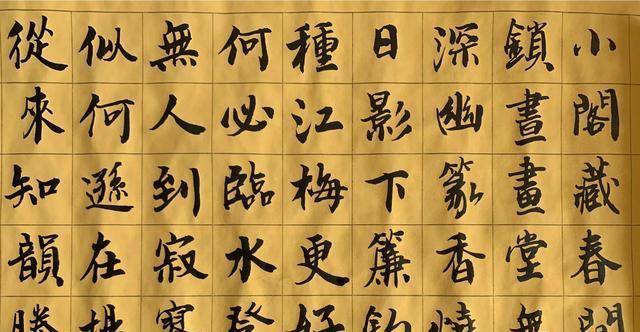 小閣藏春
鎖晝畫堂無
深幽篆香燒
日影下簾鈎
種江梅更好
何必臨水登
無人到寂寥
似何遜在揚
從來知韻勝